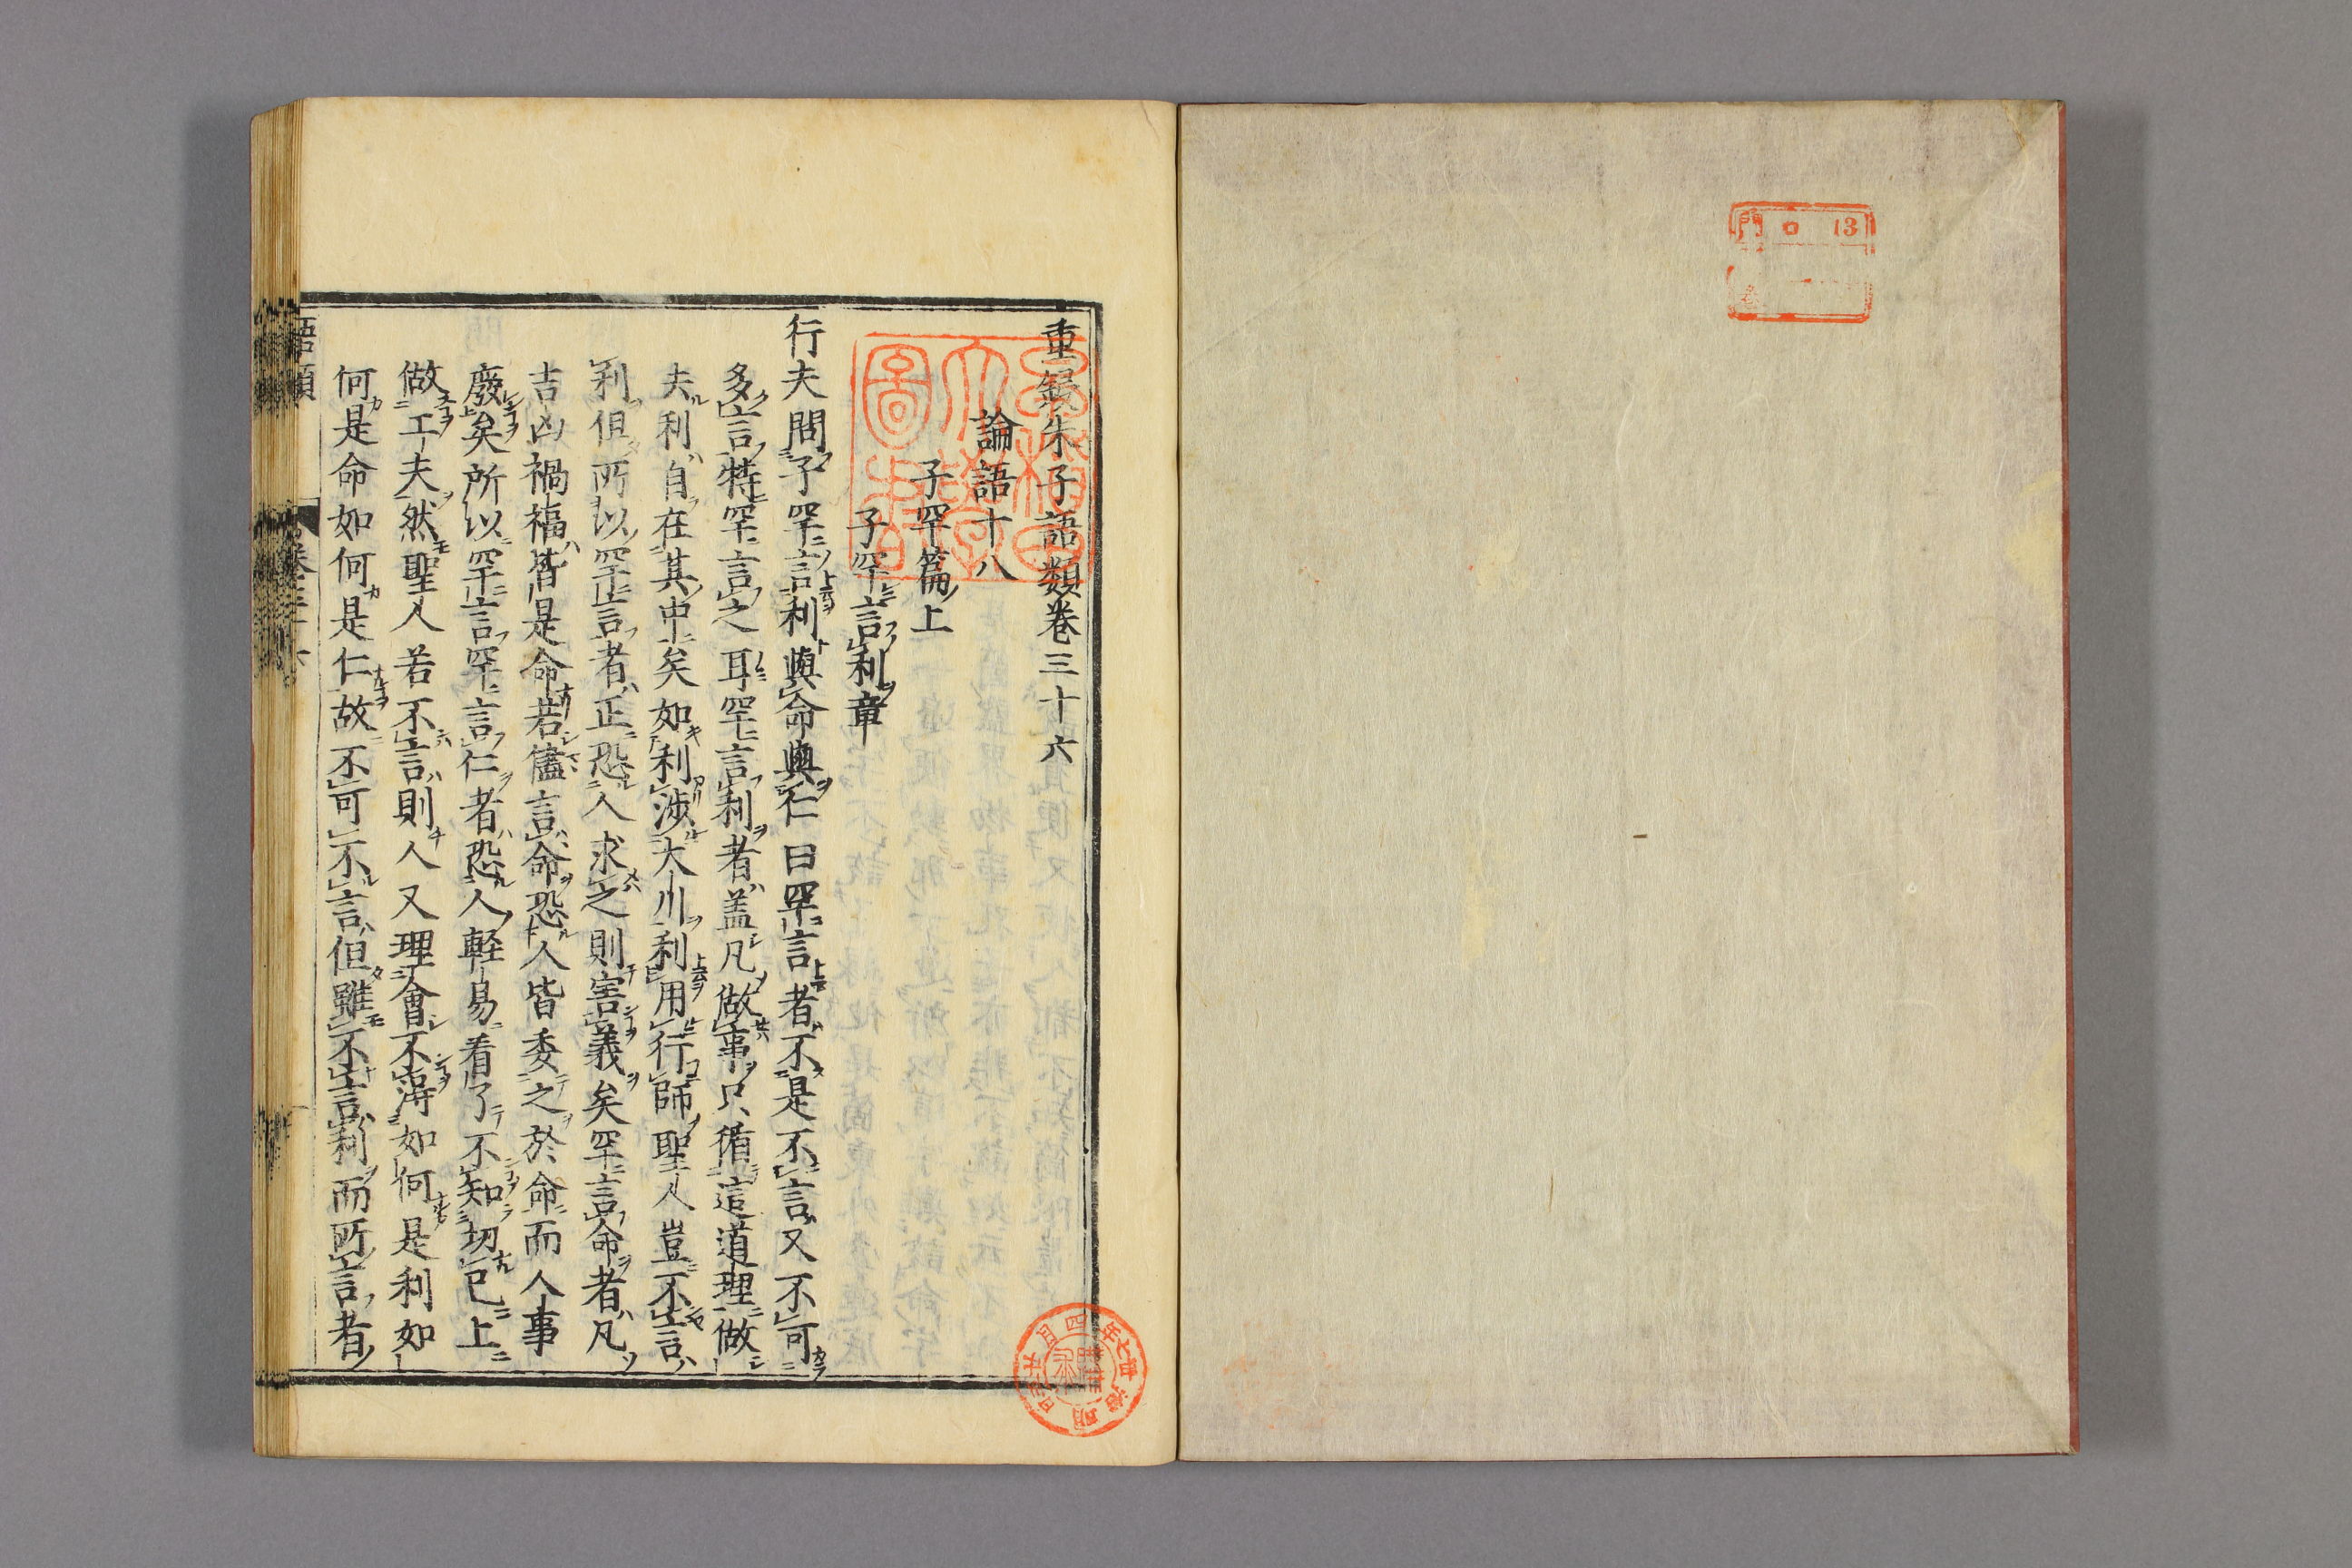 重鋟朱子語類卷三十六
論語十八
子罕篇上
子罕言利章
行夫問子罕言利與命與仁曰罕言者不是不言又不可
多言特罕言之耳罕言利者盖凡做事只循這道理做
去利自在其中矣如利渉大川利用行師聖人豈不言
利但所以罕言者正恐人求之則害義矣罕言命者凡
吉凶禍福皆是命若儘言命恐人皆委之於命而人事
廢矣所以罕言罕言仁者恐人輕易看了不知切己上
做工夫然聖人若不言則人又理會不得如何是利如
何是命如何是仁故不可不言但雖不言利而所言者
語類
卷三十六
門 口 13
明治卅七年四月廿五日